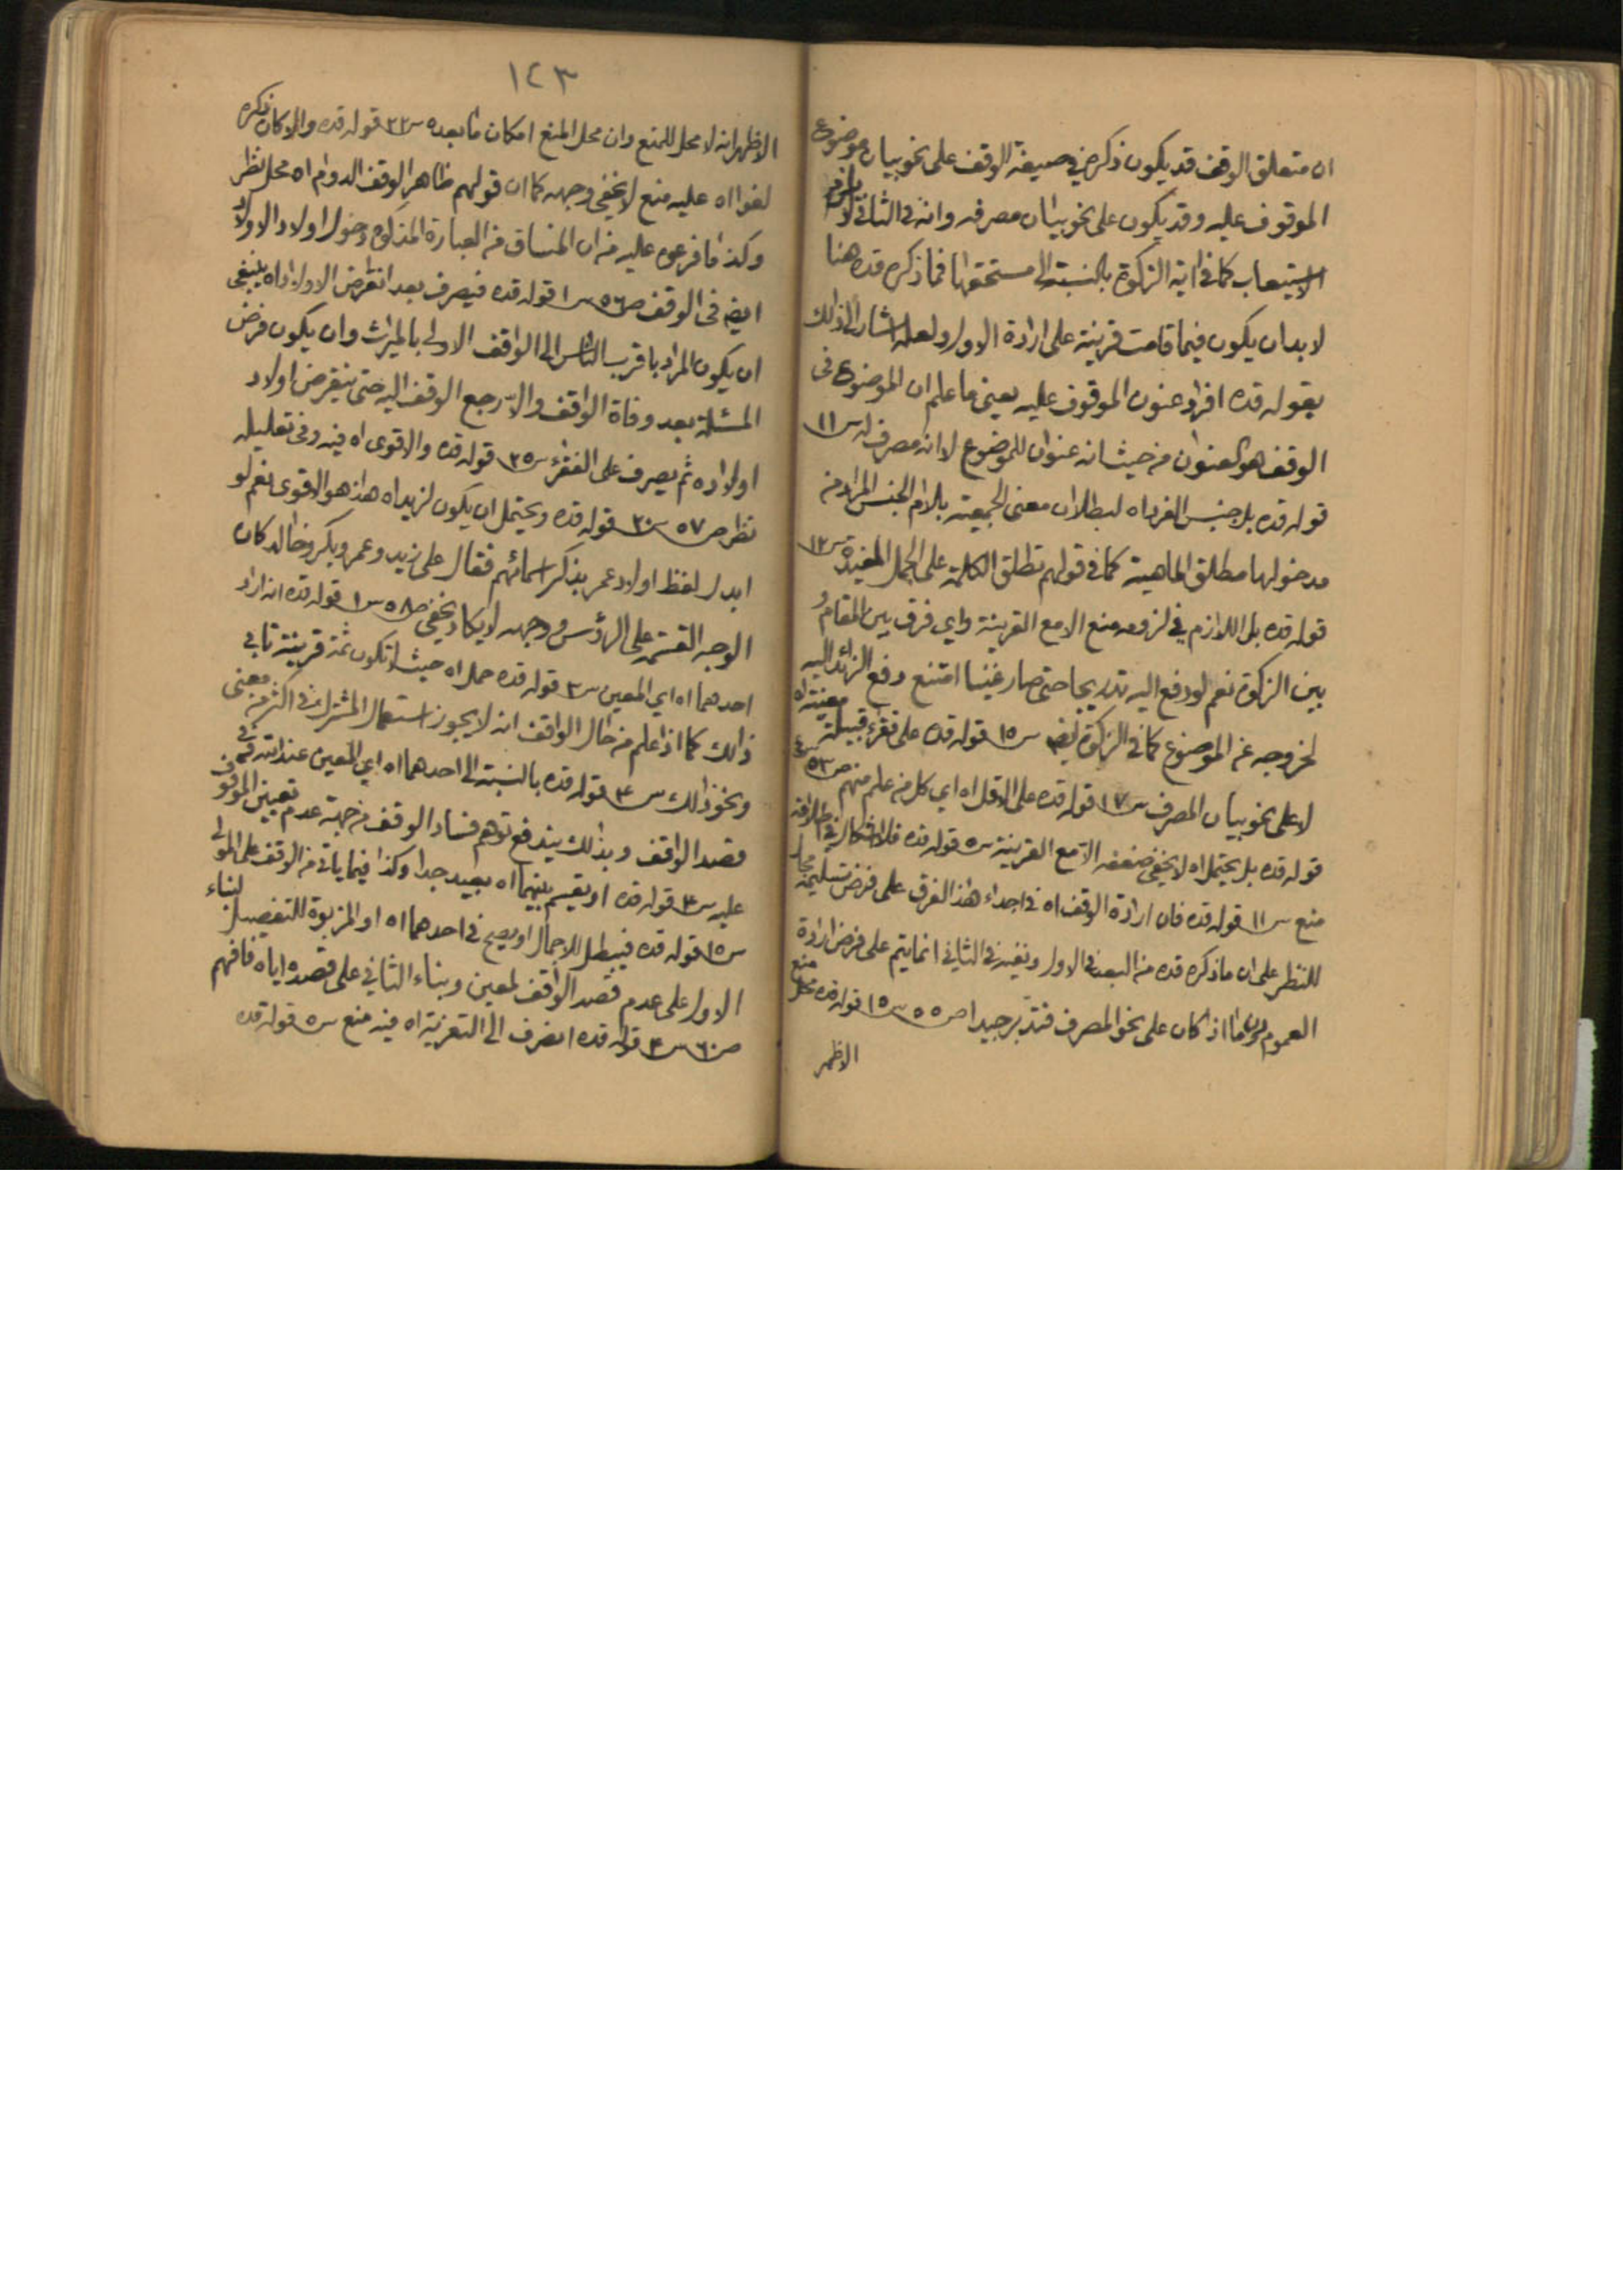 ان متعلق الوقف قد يكون ذكره في صيغة الوقف على نحو بيان موضوع
الموقوف عليه وقد يكون على نحو بيان مصرفه وانه في الثاني لا يلزم
الاستيعاب كما في اية الزكوة بالنسبة الى مستحقها فما ذكره قده هنا
لا بد ان يكون فيما قامت قرينة على ارادة الاول ولعله اشار الى ذلك
بقوله قده افراد عنوان الموقوف عليه يعني ما علم ان الموضوع في
الوقف هو العنوان من حيث انه عنوان للموضوع لا انه مصرف له س١١
قوله قده بل جنس الفرد اه لبطلان معنى الجمعية بلام الجنس المراد من
مدخولها مطلق الماهية كما في قولهم تطلق الكلمة على الجمل المفيدة س١٢
قوله قده بل اللازم في لزومه منع الا مع القرينة واي فرق بين المقام و
بين الزكوة نعم لو دفع اليه تدريجا حتى صار غنيا امتنع دفع الزائد اليه
لخروجه عن الموضوع كما في الزكوة ايضا س١٥ قوله قده على فقراء قبيلة معينة اه
لا على نحو بيان المصرف س١٧ قوله قده على الاقل اه اي كل من علم منهم ص٥٣ س٤
قوله قده بل يحتمل اه لا يخفى ضعفه الا مع القرينة س٥ قوله قده فلا اشكال في اطلاقه
منع س١١ قوله قده فان ارادة الوقف اه في اجداء هذا الفرق على فرض تسليمه مجال
للنظر على ان ما ذكره قده من البعد في الاول ونفيه في الثاني انما يتم على فرض ارادة
العموم دون ما اذا كان على نحو المصرف فتدبر جيدا ص٥٥ س١٥ قوله قده محل منع
الاظهر
١٤٣
الاظهر انه لا محل للمنع وان محل المنع امكان ما بعده س٢٢ قوله قده والا كان ذكره
لغوا اه عليه منع لا يخفى وجهه كما ان قولهم ظاهر الوقف الدوام اه محل نظر
وكذا ما فرعوه عليه من ان المنساق من العبارة المذكورة دخول اولاد الاولاد
ايضا في الوقف ص٥٦ س١ قوله قده فيصرف بعد انقراض الاولاد اه ينبغي
ان يكون المراد باقرب الناس الى الواقف الاولى بالميراث وان يكون فرض
المسئلة بعد وفاة الواقف والا رجع الوقف اليه حتى ينقرض اولاد
اولاده ثم يصرف على الفقراء س٢٥ قوله قده والاقوى اه فيه وفي تعليله
نظر ص٥٧ س٢٠ قوله قده ويحتمل ان يكون لزيد اه هذا هو الاقوى نعم لو
ابدل لفظ اولاد عمر بذكر اسمائهم فقال على زيد وعمر وبكر وخالد كان
الوجه القسمة على الرؤس ووجهه لا يكاد يخفى ص٥٨ س١ قوله قده انه اراد
احدهما اه اي المعين س٣ قوله قده حمل اه حيث لا تكون ثمة قرينة تابى
ذلك كما اذا علم من حال الواقف انه لا يجوز استعمال المشترك في اكثر من معنى
ونحو ذلك س٤ قوله قده بالنسبة الى احدهما اه اي المعين عند الله في
قصد الواقف وبذلك يندفع توهم فساد الوقف من جهة عدم تعيين الموقوف
عليه س٤ قوله قده او يقسم بينهما اه بعيد جدا وكذا فيما ياتي من الوقف على الموالي
س١٥ قوله قده فيبطل للاجمال او يصح في احدهما اه او المزبوة للتفصيل لبناء
الاول على عدم قصد الواقف لمعين وبناء الثاني على قصده اياه فافهم
ص٦٠ س٤ قوله قده انصرف الى التعزية اه فيه منع س٥ قوله قده